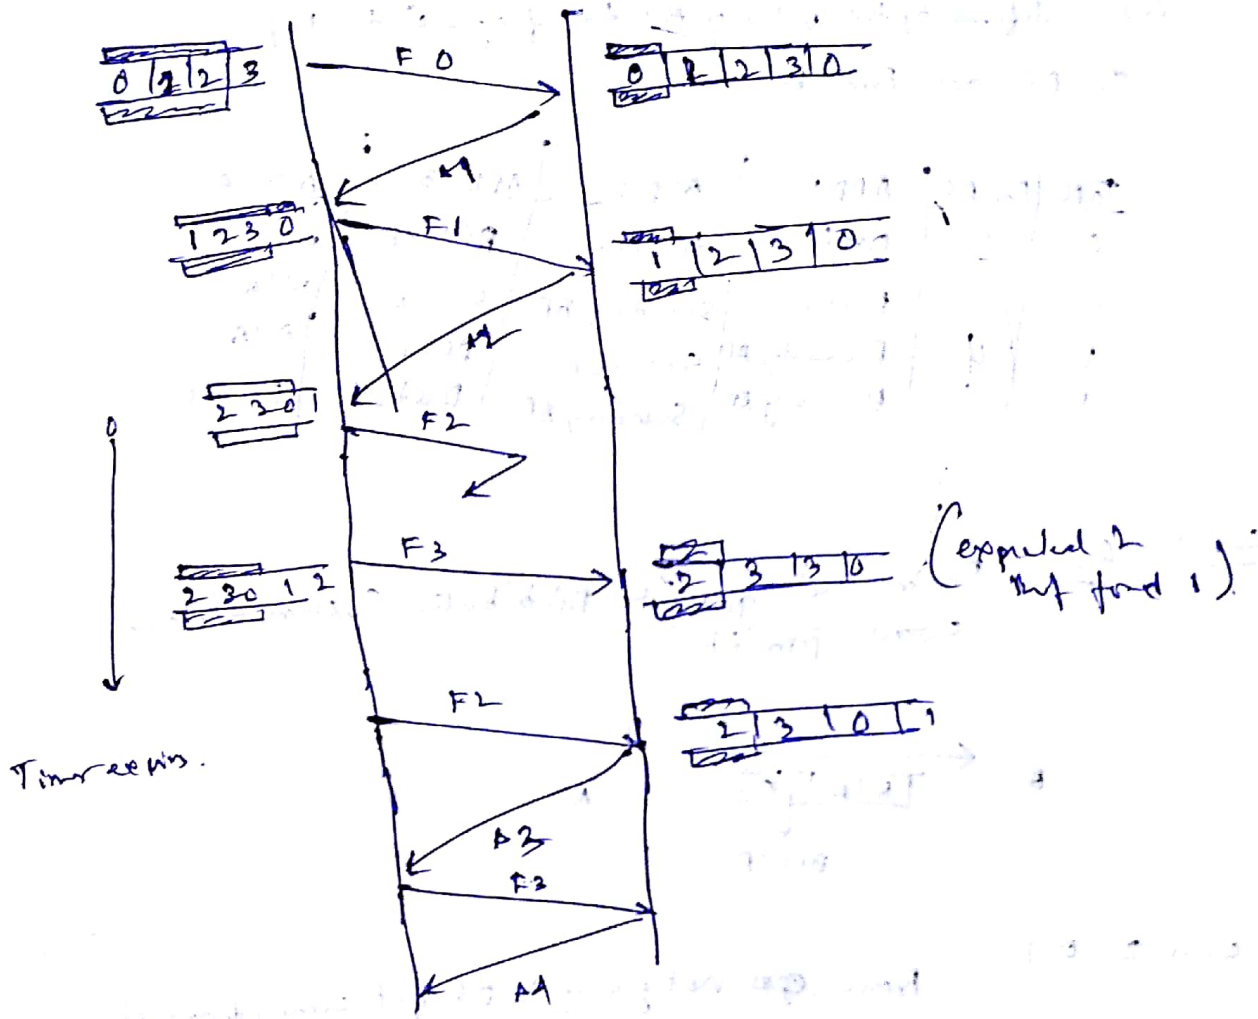 F 0
0 1 2 3
0 1 2 3 0
A1
F1
1 2 3 0
1 2 3 0
A2
2 3 0 1
F2
0
F3
2 3 0 1 2
2 3 3 0
(expected 2
but found 1)
F2
2 3 0 1
Timer expires.
A3
F3
A4